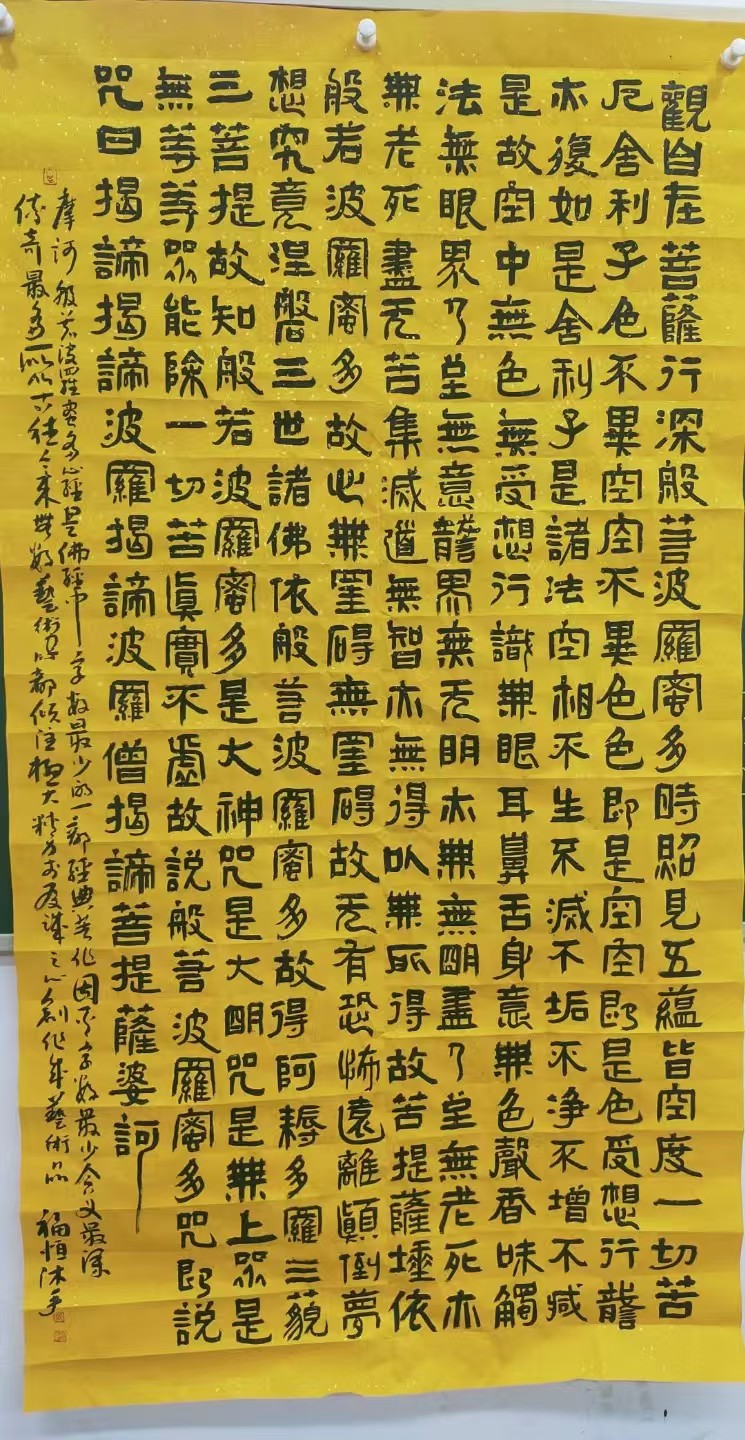 觀自在菩薩行深般若波羅蜜多時照見五蘊皆空度一切苦
厄舍利子色不異空空不異色色即是空空即是色受想行識
亦復如是舍利子是諸法空相不生不滅不垢不淨不增不減
是故空中無色無受想行識無眼耳鼻舌身意無色聲香味觸
法無眼界乃至無意識界無无明亦無無明盡乃至無老死亦
無老死盡无苦集滅道無智亦無得以無所得故苦提薩埵依
般若波羅蜜多故心無罣碍無罣碍故无有恐怖遠離顛倒夢
想究竟涅槃三世諸佛依般若波羅蜜多故得阿耨多羅三藐
三菩提故知般若波羅蜜多是大神咒是大明咒是無上咒是
無等等咒能除一切苦真實不虛故説般若波羅蜜多咒即説
咒曰揭諦揭諦波羅揭諦波羅僧揭諦菩提薩婆訶
摩訶般若波羅蜜多心經是佛經中字数最少的一部經典著作因為字数最少含义最深
傳奇最多所以古往今來無数藝術家都傾注極大精力和虔誠之心創作成藝術品 福恒沐手